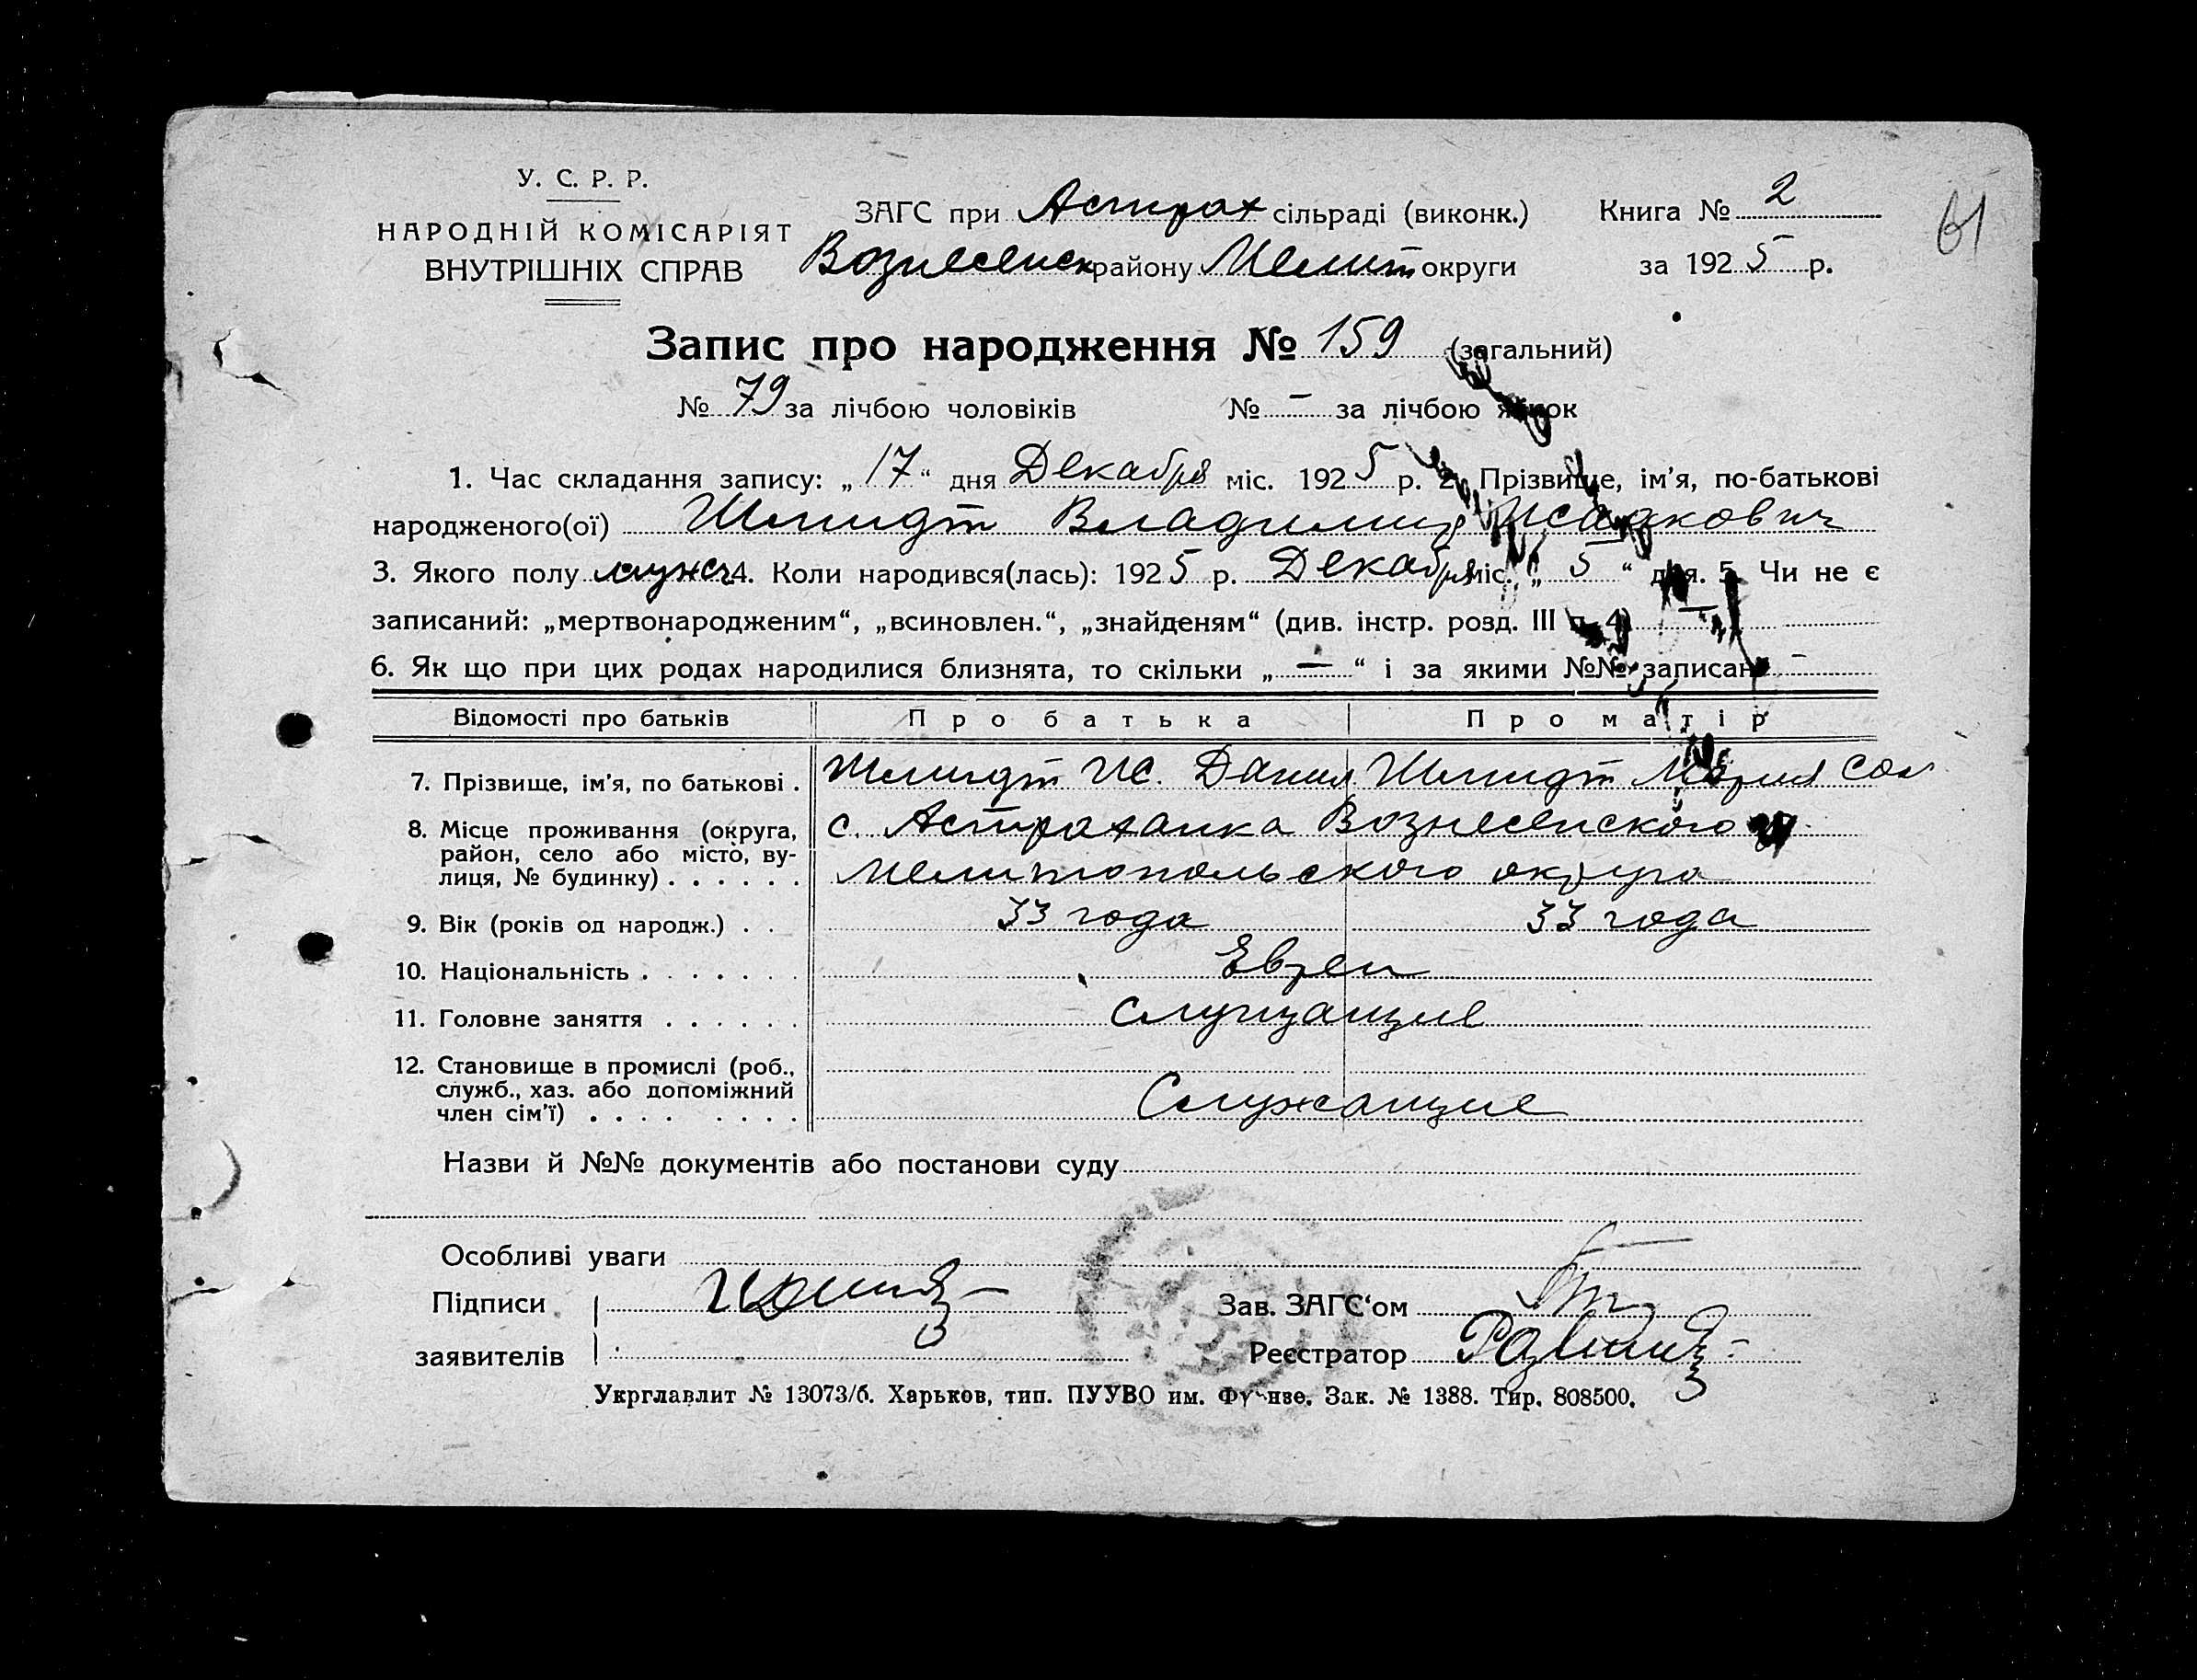 У. С. Р. Р.
НАРОДНІЙ КОМІСАРІЯТ
ВНУТРІШНІХ СПРАВ
ЗАГС при Астрах сільраді (виконк.)
Вознесенск району Мелит округи
Книга № 2
за 1925 р.
61
Запис про народження № 159 (загальний)
№ 79 за лічбою чоловіків № – за лічбою жінок
1. Час складання запису: „17“ дня Декабря міс. 1925 р. 2. Прізвище, ім'я, по-батькові
народженого(ої) Шмидт Владимир Исаакович
3. Якого полу мужск 4. Коли народився(лась): 1925 р. Декабря міс. „5“ дня. 5. Чи не є
записаний: „мертвонародженим“, „всиновлен.“, „знайденям“ (див. інстр. розд. III п. 4) –
6. Як що при цих родах народилися близнята, то скільки „—“ і за якими №№ записані –
Відомості про батьків Про батька Про матір
7. Прізвище, ім'я, по батькові . Шмидт Ис. Данил Шмидт Мария Сол
8. Місце проживання (округа, район, село або місто, ву-лиця, № будинку) . . . . . . с. Астраханка Вознесенского
Мелитопольского округа
9. Вік (років од народж.) . . 33 года 33 года
10. Національність . . . . . . . Евреи
11. Головне заняття . . . . . . Служащие
12. Становище в промислі (роб., служб., хаз. або допоміжний член сім'ї) . . . . . . . . Служащие
Назви й №№ документів або постанови суду
Особливі уваги
Підписи
заявителів
Зав. ЗАГС'ом
Реєстратор
Укрглавлит № 13073/б. Харьков, тип. ПУУВО им. Фрунзе. Зак. № 1388. Тир. 808500.